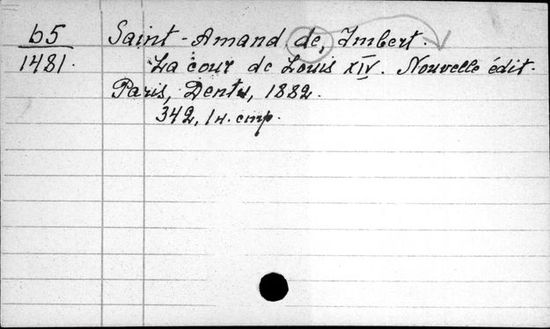 b5
1481.
Saint-Amand de, Imbert.
La cour de Louis XIV. Nouvelle édit.
Paris, Dentu, 1882.
342, 1 н. стр.